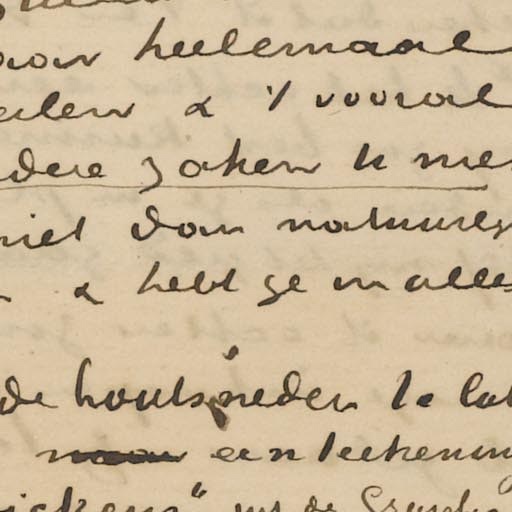 voor heelemaal
& 't vooral
dere zaken te
niet dan natuurl
& hebt ge in alles
de houtsneden te lat
een teekening
ickens" uit de Graphic